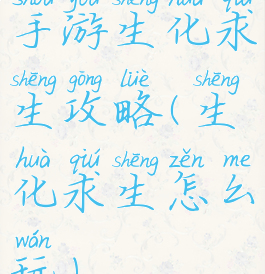 shǒu yóu shēng huà qiú
手游生化求
shēng gōng lüè shēng
生攻略(生
huà qiú shēng zěn me
化求生怎么
wán
玩)